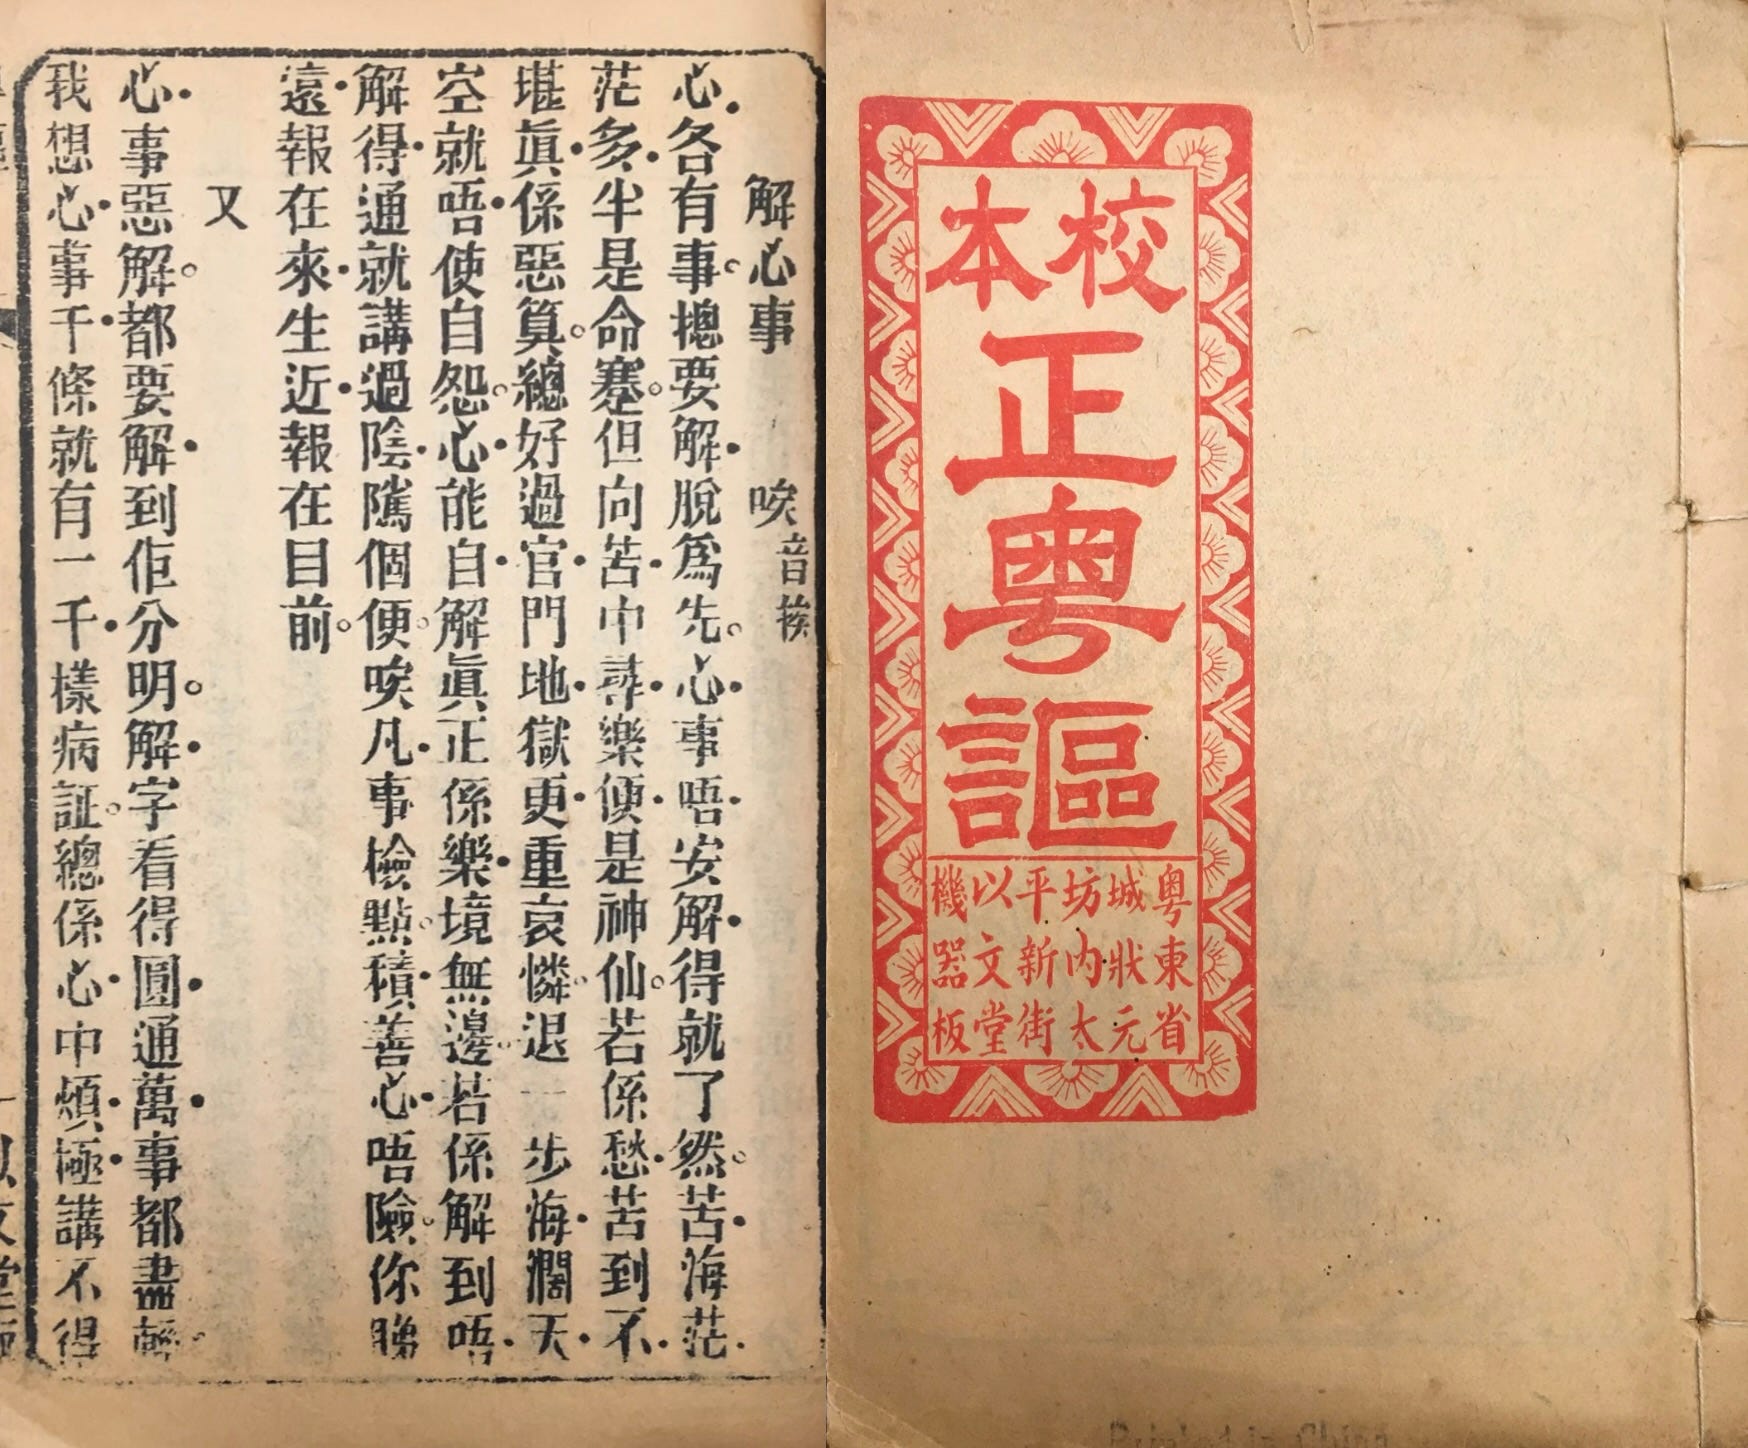 校本
正
粵
謳
粵東省
城狀元
坊內太
平新街
以文堂
機器板
解心事　唉音挨
心各有事。揔要解脫爲先。心事唔安解得就了然。苦海茫
茫多半是命蹇。但向苦中尋樂便是神仙。若係愁苦到不
堪眞係惡算。總好過官門地獄更重哀憐。退一步海濶天
空就唔使自怨。心能自解眞正係樂境無邊。若係解到唔
解得通就講過陰隲個便。唉凡事檢點。積善心唔險。你睇
遠報在來生近報在目前。
又
心事惡解。都要解到佢分明。解字看得圓通萬事都盡輕。
我想心事千條就有一千樣病証。總係心中煩極講不得
Printed in China